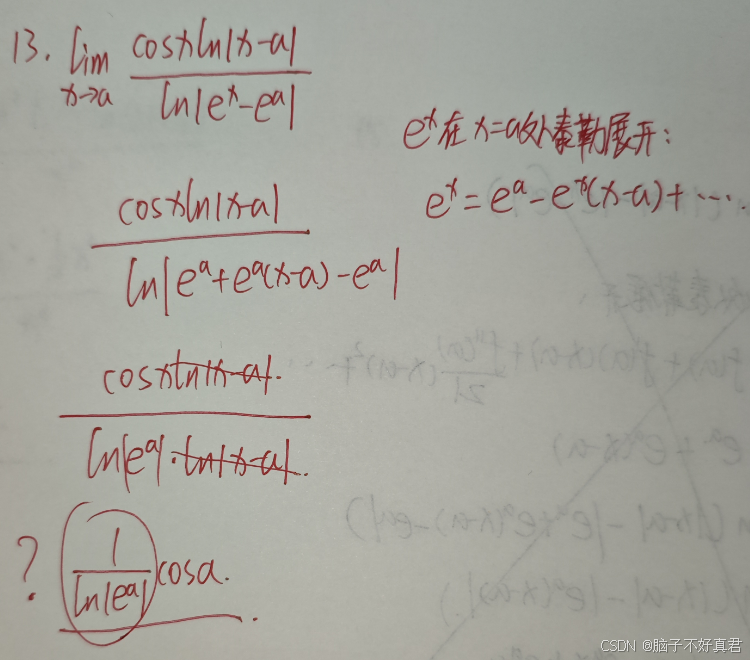 13. lim x→a cosx ln|x-a| / ln|e^x-e^a|
e^x在x=a处泰勒展开:
e^x = e^a - e^x(x-a) + ….
cosx ln|x-a| / ln|e^a+e^a(x-a)-e^a|
cosx ln|x-a|. / ln|e^a|·ln|x-a|.
? 1/ln|e^a| cosa.
CSDN @脑子不好真君